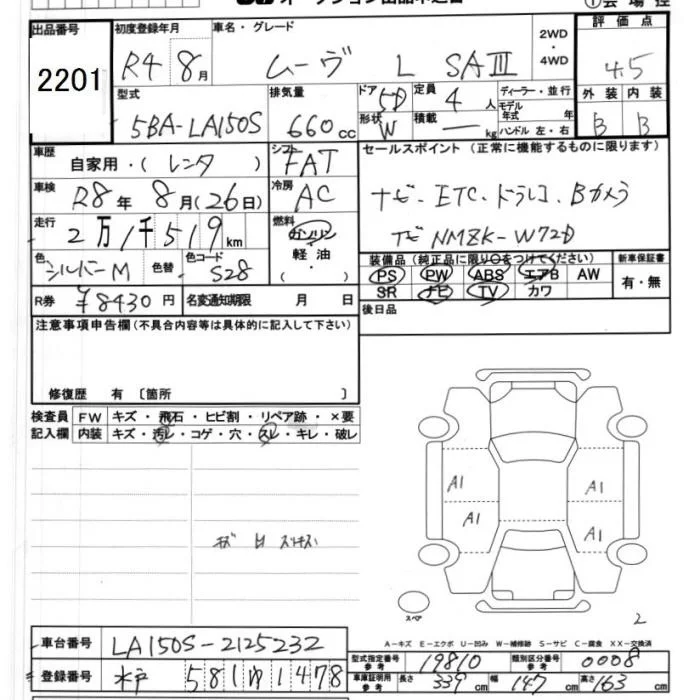 出品番号 2201
初度登録年月 R4 8月
車名・グレード ムーヴ L SAⅢ
2WD・4WD
評価点 4.5
外装 内装
B B
型式 5BA-LA150S
排気量 660cc
ドア 5D
形状 W
定員 4人
積載 — kg
ディーラー・並行
モデル年式 年
ハンドル 左・右
車歴 自家用・(レンタ)
シフト FAT
車検 R8年8月(26日)
冷房 AC
走行 2万1千519km
燃料 ガソリン 軽油・
色 シルバーM 色替 色コード S28
R券 ¥8430円 名変通知期限 月 日
セールスポイント(正常に機能するものに限ります)
ナビ・ETC・ドラレコ・Bカメラ
ナビ NMZK-W72D
装備品(純正品に限り○をつけてください)
PS PW ABS エアB AW
SR ナビ TV カワ
新車保証書 有・無
後日品
注意事項申告欄(不具合内容等は具体的に記入して下さい)
修復歴 有〔箇所 〕
検査員記入欄
FW キズ・飛石・ヒビ割・リペア跡・×要
内装 キズ・汚レ・コゲ・穴・スレ・キレ・破レ
A1 A1
A1 A1
スペア
2
A-キズ E-エクボ U-凹み W-補修跡 S-サビ C-腐食 XX-交換済
車台番号 LA150S-2125232
登録番号 水戸 581 ゆ 1478
型式指定番号 参考 19810
類別区分番号 参考 0008
車庫証明用 参考 長さ 339cm 幅 147cm 高さ 163cm